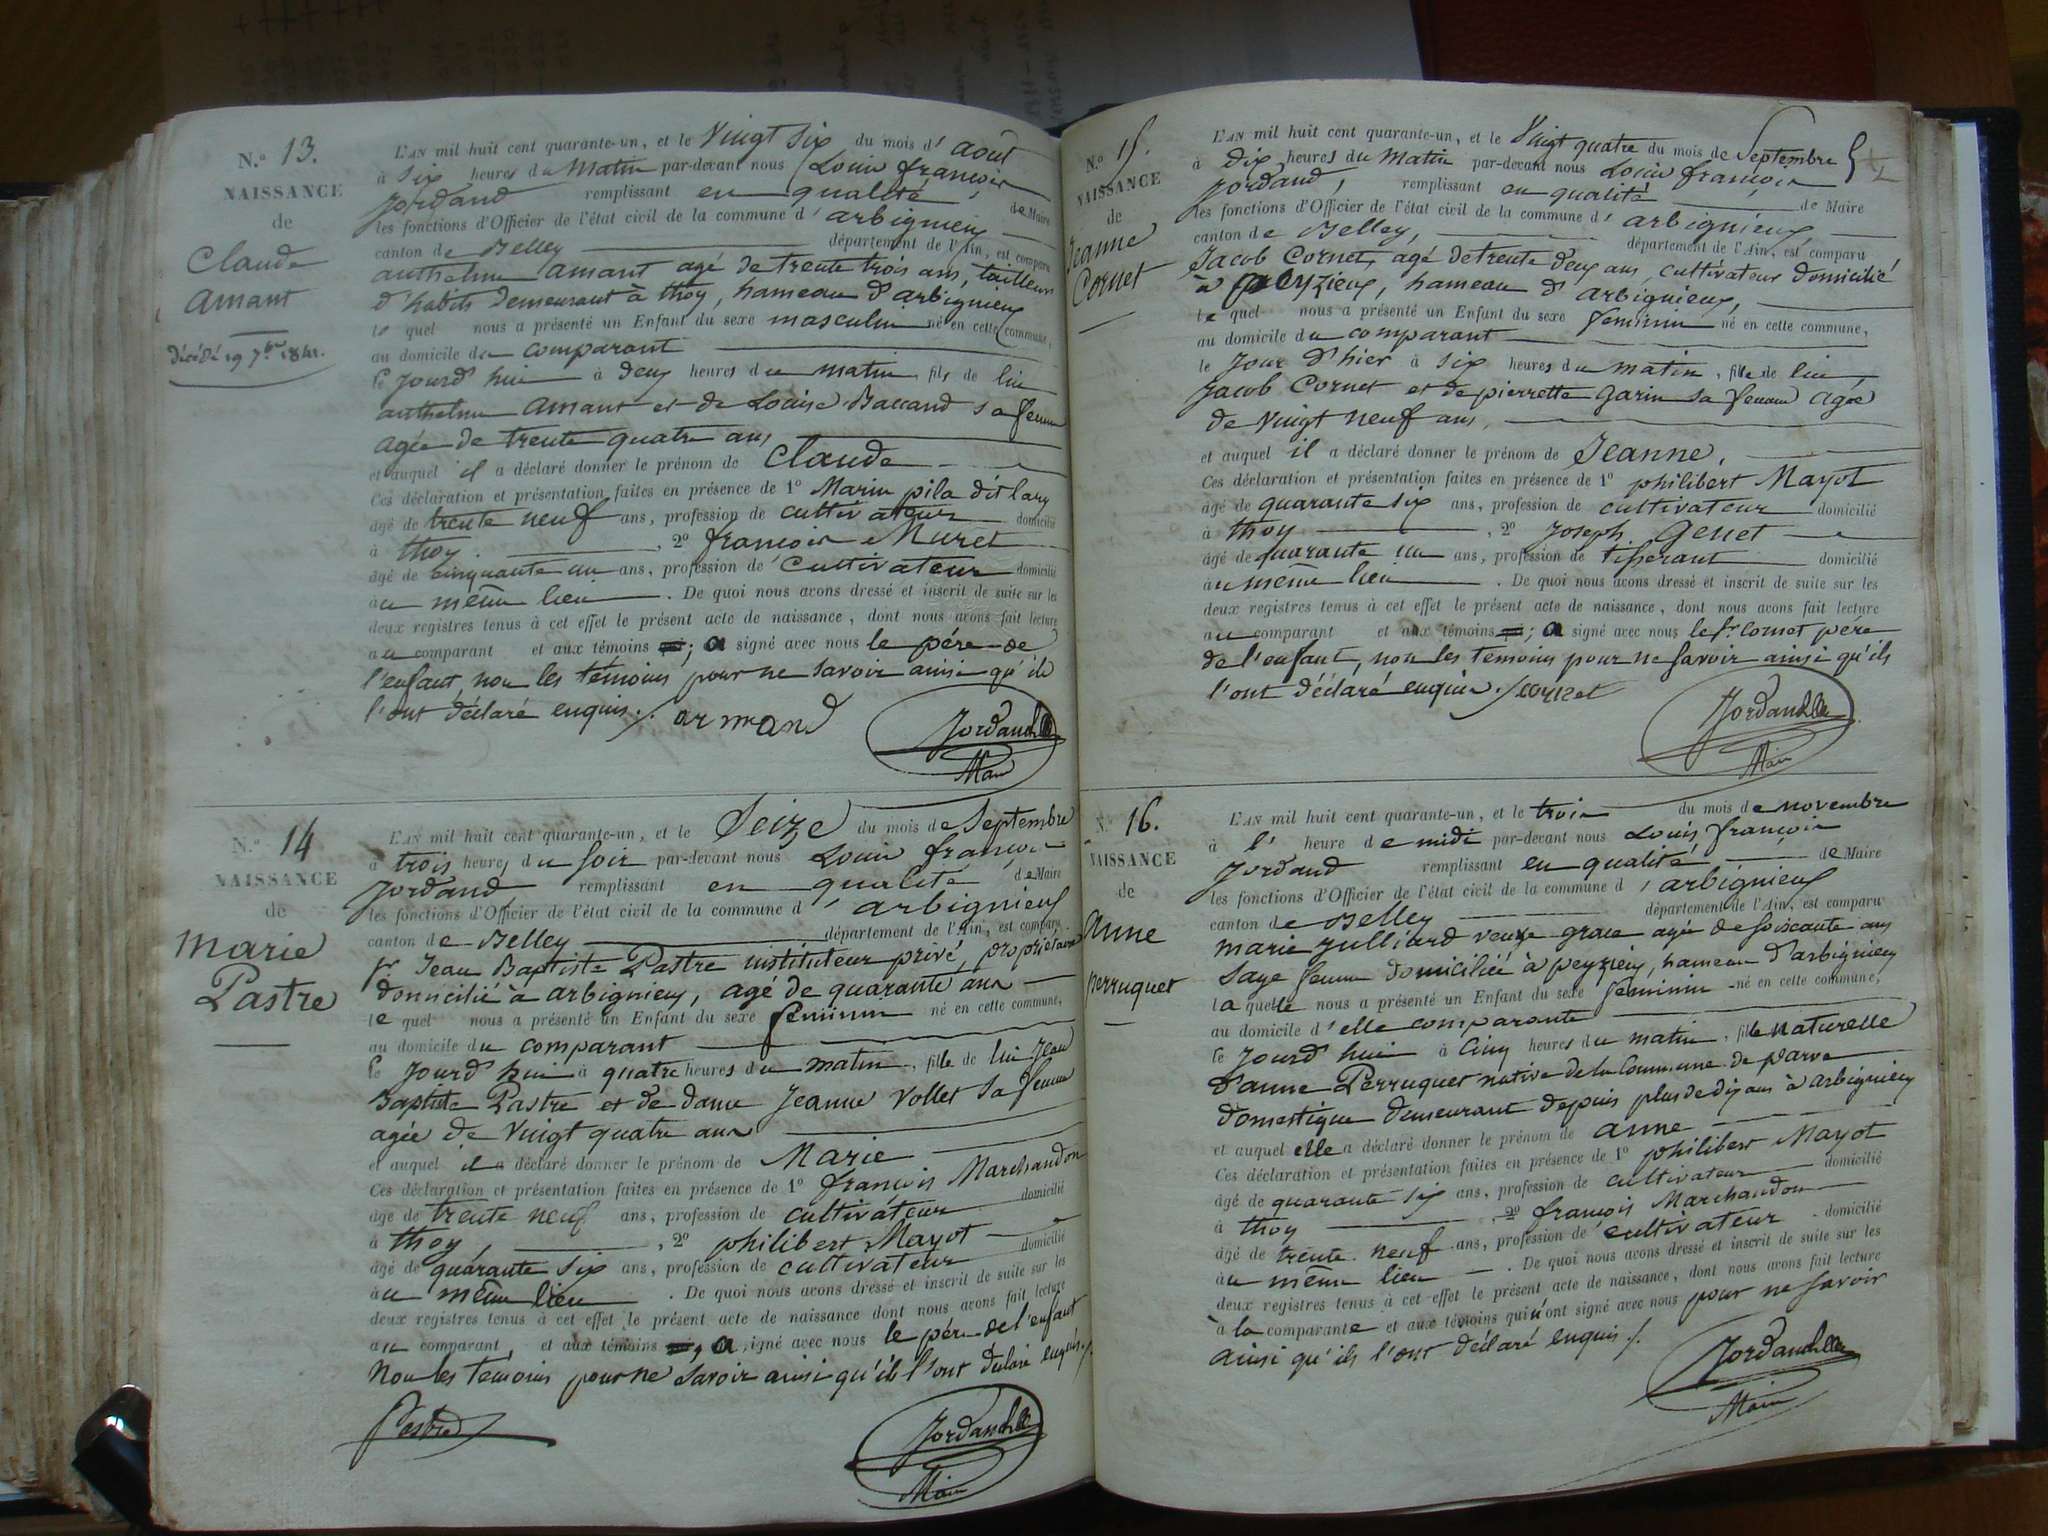 N.º 13.
NAISSANCE
de
Claude
Amant
décédé 19 7bre 1841.
L'AN mil huit cent quarante-un, et le Vingt six du mois d'août
à six heures du Matin par-devant nous Louis françois
Jordand remplissant en qualité de Maire
les fonctions d'Officier de l'état civil de la commune d'arbignieux
canton de Belley département de l'Ain, est comparu
anthelme amant agé de trente trois ans, tailleur
d'habits demeurant à thoy, hameau d'arbignieux
le quel nous a présenté un Enfant du sexe masculin né en cette commune,
au domicile du comparant
le jourd'hui à deux heures du matin, fils de lui
anthelme amant et de Louise Baccand sa femme
agée de trente quatre ans
et auquel il a déclaré donner le prénom de Claude
Ces déclaration et présentation faites en présence de 1º Marin pila dit lary
âgé de trente neuf ans, profession de cultivateur domicilié
à thoy. , 2º françois Muret
âgé de cinquante un ans, profession de Cultivateur domicilié
au même lieu . De quoi nous avons dressé et inscrit de suite sur les
deux registres tenus à cet effet le présent acte de naissance, dont nous avons fait lecture
au comparant et aux témoins ; a signé avec nous le pére de
l'enfant, non les témoins pour ne savoir ainsi qu'ils
l'ont déclaré enquis ./. armand
Jordand
Maire
N.º 14
NAISSANCE
de
Marie
Pastre
L'AN mil huit cent quarante-un, et le Seize du mois de Septembre
à trois heures du soir par-devant nous Louis françois
Jordand remplissant en qualité de Maire
les fonctions d'Officier de l'état civil de la commune d'arbignieux
canton de Belley département de l'Ain, est comparu
sr Jean Baptiste Pastre instituteur privé, propriétaire
domicilié à arbignieux, agé de quarante ans
le quel nous a présenté un Enfant du sexe féminin né en cette commune,
au domicile du comparant
le jourd'hui à quatre heures du matin, fille de lui Jean
Baptiste Pastre et de dame Jeanne Vollet sa femme
agée de Vingt quatre ans
et auquel il a déclaré donner le prénom de Marie
Ces déclaration et présentation faites en présence de 1º françois Marchandon
âgé de trente neuf ans, profession de cultivateur domicilié
à thoy, , 2º philibert Mayot
âgé de quarante six ans, profession de cultivateur domicilié
au même lieu . De quoi nous avons dressé et inscrit de suite sur les
deux registres tenus à cet effet le présent acte de naissance dont nous avons fait lecture
au comparant, et aux témoins , a signé avec nous le pére de l'enfant
Non les témoins pour ne savoir ainsi qu'ils l'ont déclaré enquis ./.
Pastre
Jordand
Maire
N.º 15.
NAISSANCE
de
Jeanne
Cornet
L'AN mil huit cent quarante-un, et le Vingt quatre du mois de Septembre
à dix heures du Matin par-devant nous Louis françois
Jordand, remplissant en qualité de Maire
les fonctions d'Officier de l'état civil de la commune d'arbignieux,
canton de Belley, département de l'Ain, est comparu
Jacob Cornet, agé de trente deux ans, cultivateur domicilié
à peyzieux, hameau d'arbignieux,
le quel nous a présenté un Enfant du sexe féminin né en cette commune,
au domicile du comparant
le Jour d'hier à six heures du matin, fille de lui
Jacob Cornet et de pierrette Garin sa femme agée
de Vingt neuf ans,
et auquel il a déclaré donner le prénom de Jeanne,
Ces déclaration et présentation faites en présence de 1º philibert Mayot
âgé de quarante six ans, profession de cultivateur domicilié
à thoy , 2º Joseph Genet
âgé de quarante un ans, profession de tisserant domicilié
au même lieu . De quoi nous avons dressé et inscrit de suite sur les
deux registres tenus à cet effet le présent acte de naissance, dont nous avons fait lecture
au comparant et aux témoins ; a signé avec nous le sr Cornet père
de l'enfant, non les témoins pour ne savoir ainsi qu'ils
l'ont déclaré enquis ./. cornet
Jordand
Maire
N. 16.
NAISSANCE
de
Anne
Perruquet
L'AN mil huit cent quarante-un, et le trois du mois de novembre
à l'heure de midi par-devant nous Louis françois
Jordand remplissant en qualité de Maire
les fonctions d'Officier de l'état civil de la commune d'arbignieux
canton de Belley département de l'Ain, est comparu
marie julliard veuve grace agée de soiscante ans
sage femme domiciliée à peyzieux, hameau d'arbignieux
la quelle nous a présenté un Enfant du sexe féminin né en cette commune,
au domicile d'elle comparante
le jourd'hui à Cinq heures du matin, fille naturelle
d'anne Perruquet native de la Commune de parve
domestique demeurant depuis plus de dix ans à arbignieux
et auquel elle a déclaré donner le prénom de anne
Ces déclaration et présentation faites en présence de 1º philibert Mayot
âgé de quarante six ans, profession de cultivateur domicilié
à thoy , 2º françois Marchandon
âgé de trente neuf ans, profession de cultivateur domicilié
au même lieu . De quoi nous avons dressé et inscrit de suite sur les
deux registres tenus à cet effet le présent acte de naissance, dont nous avons fait lecture
à la comparante et aux témoins qui n'ont signé avec nous pour ne savoir
ainsi qu'ils l'ont déclaré enquis ./.
Jordand
Maire